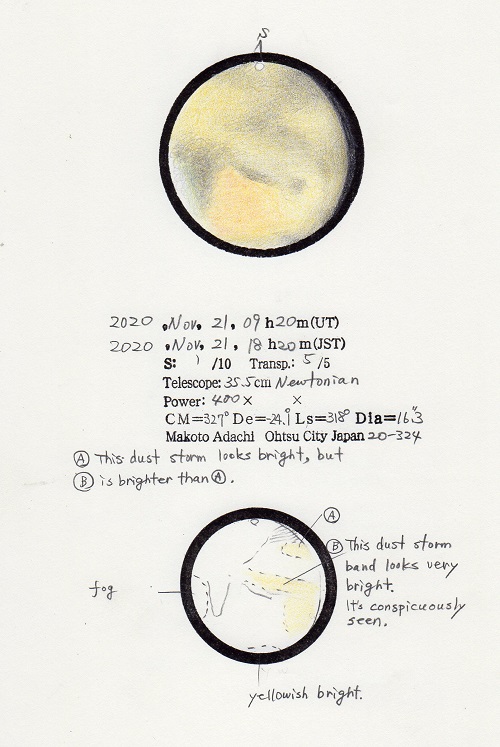 S
2020 ,Nov, 21, 09 h20m(UT)
2020 ,Nov, 21, 18 h20m(JST)
S: 1 /10 Transp.: 5 /5
Telescope: 35.5cm Newtonian
Power: 400× ×
CM=327° De=-24.1° Ls=318° Dia=16".3
Makoto Adachi Ohtsu City Japan 20-324
Ⓐ This dust storm looks bright, but
Ⓑ is brighter than Ⓐ.
Ⓐ
Ⓑ This dust storm
band looks very
bright.
It's conspicuously
seen.
fog
yellowish bright.